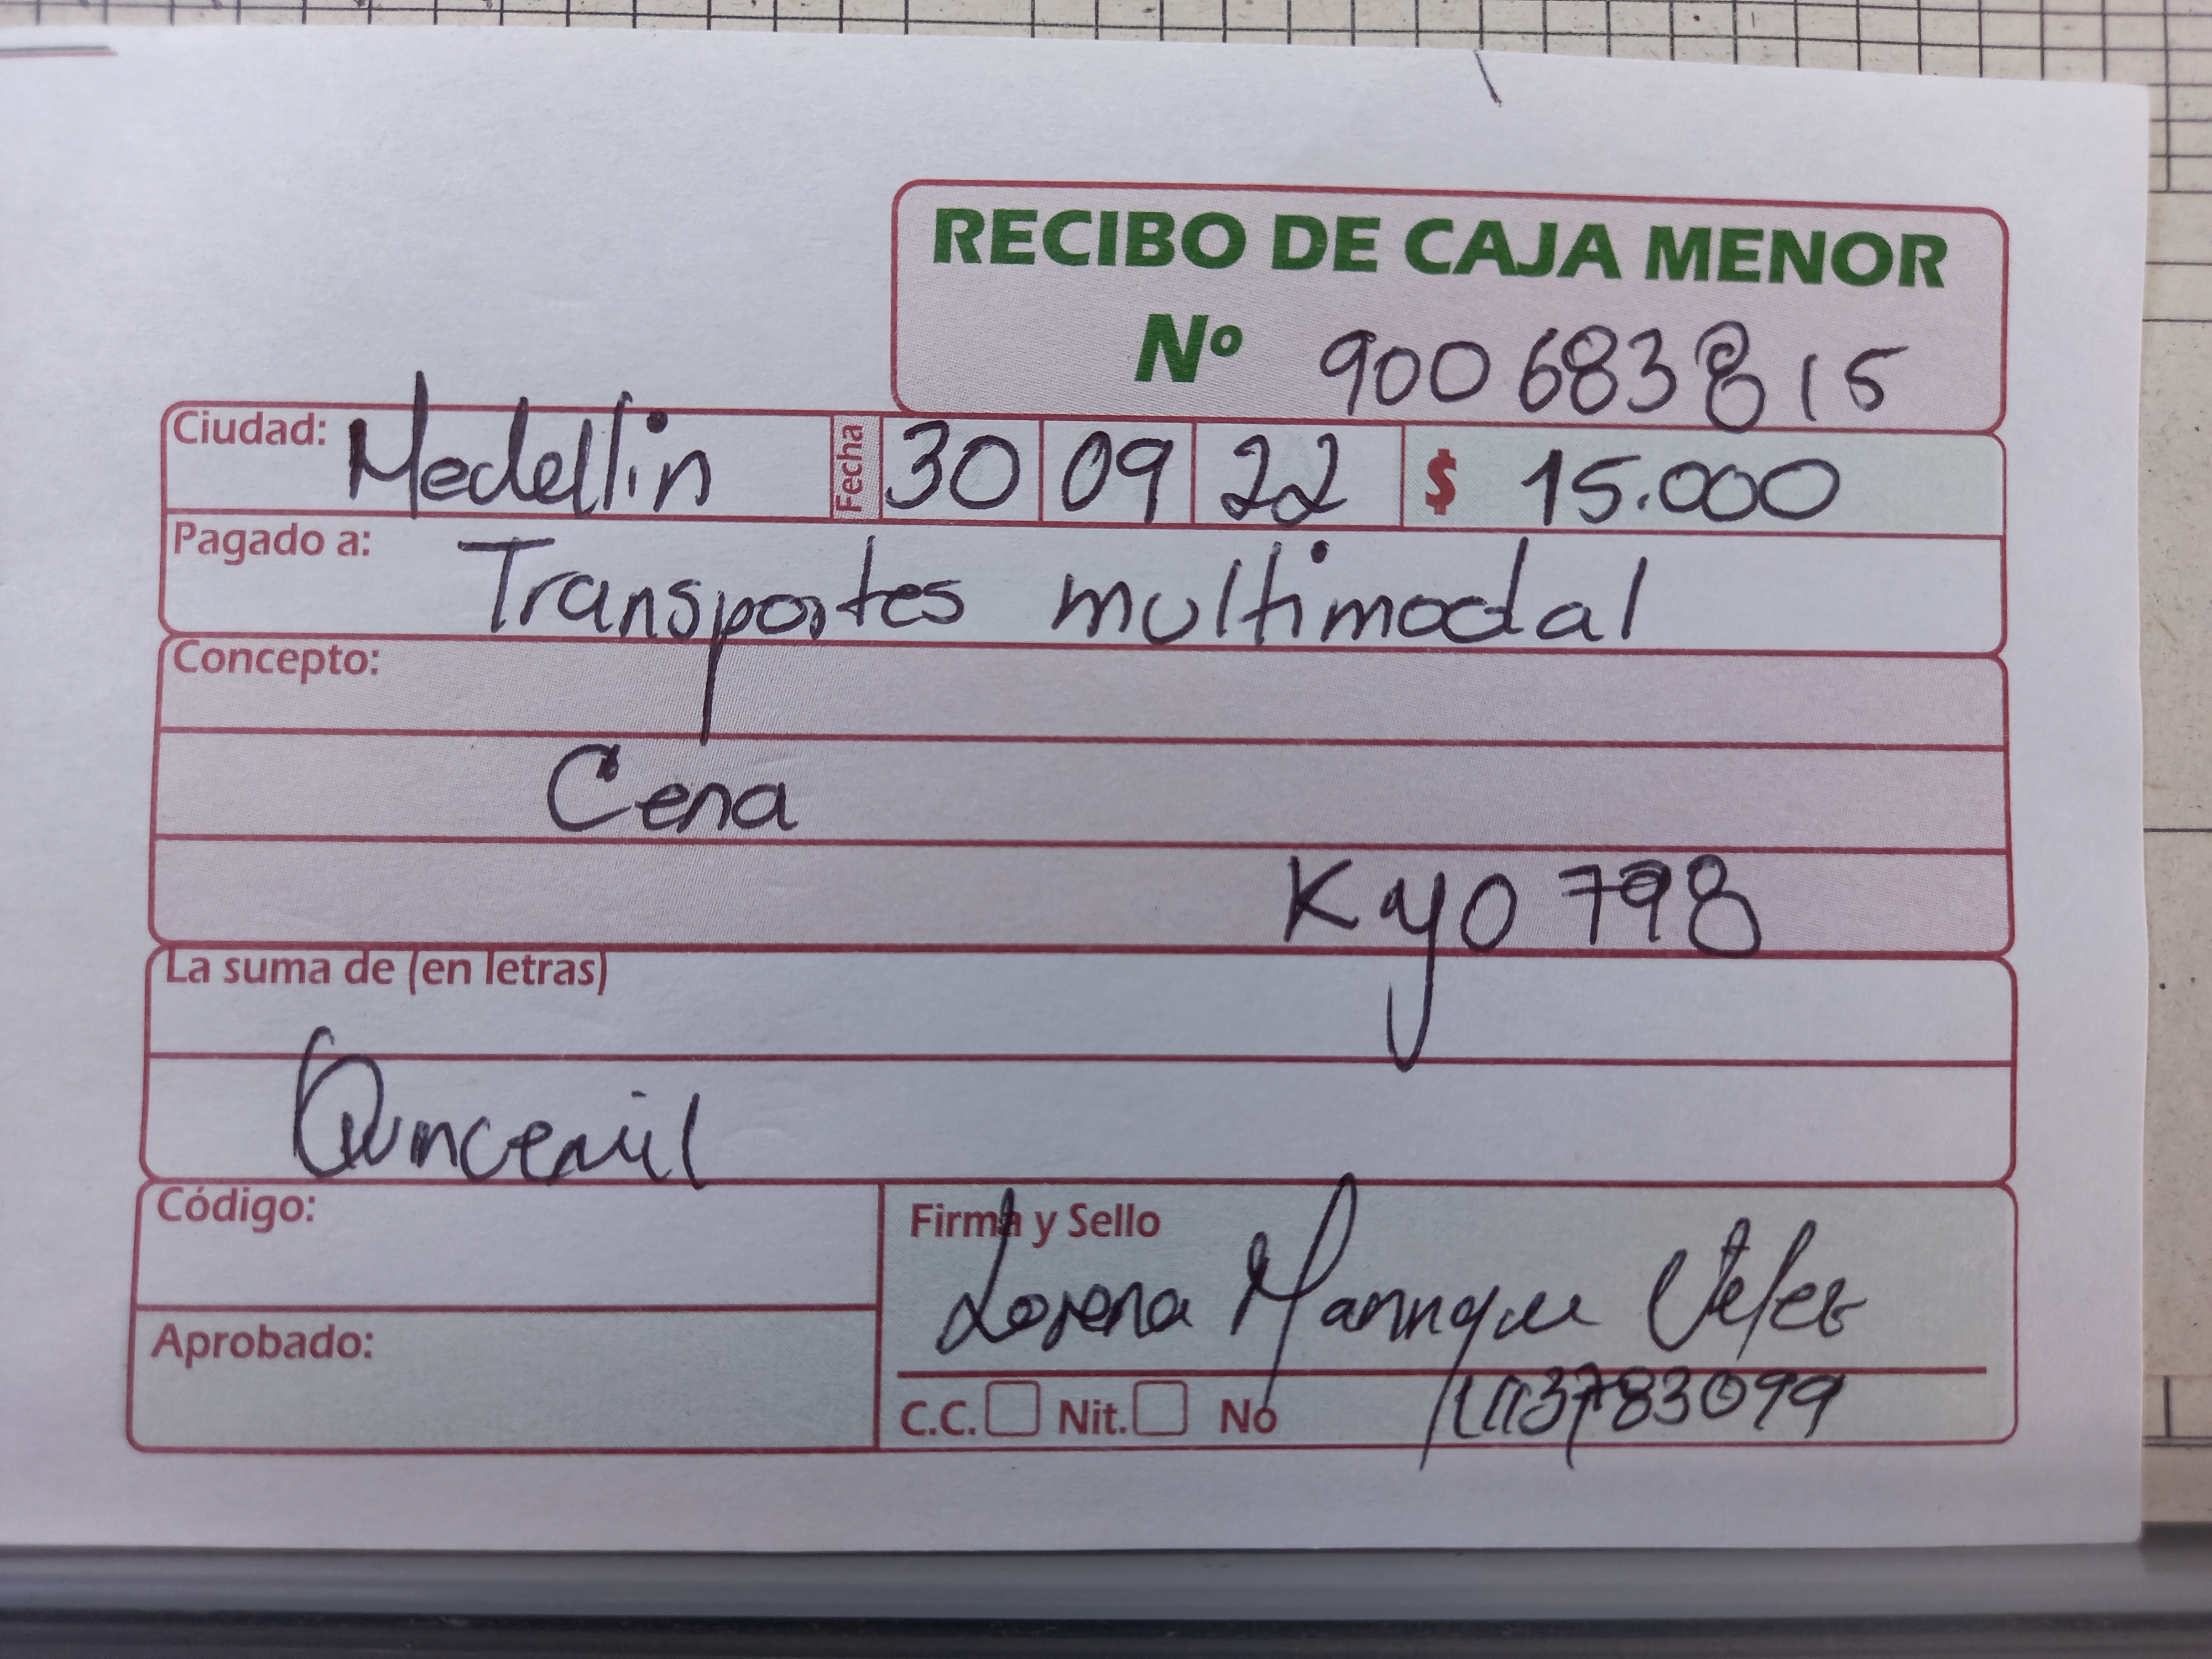 RECIBO DE CAJA MENOR
Nº 900683815
Ciudad: Medellin Fecha 30 09 22 $ 15.000
Pagado a: Transportes multimodal
Concepto:
Cena
Kyo 798
La suma de (en letras)
Quincemil
Código:
Firma y Sello
Lorena Manrique Velez
Aprobado:
C.C. Nit. No 1113783099